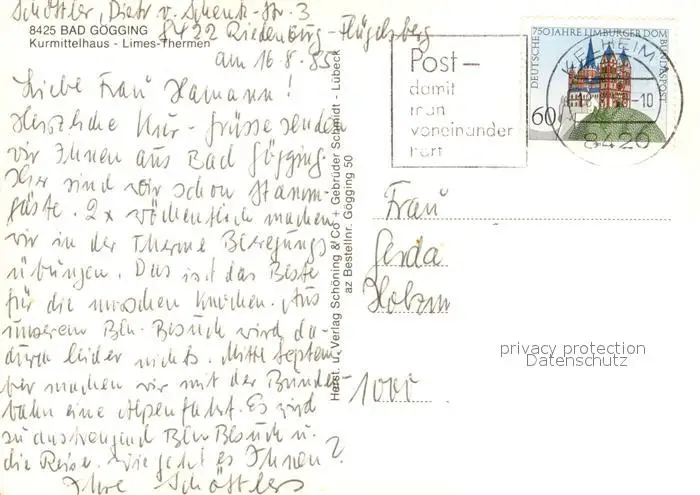 Schöttler, Dietr. v. Schenk-Str. 3
8425 BAD GÖGGING
8422 Riedenburg-Flügelsberg
Kurmittelhaus - Limes-Thermen
am 16.8.85
Liebe Frau Hamann!
Herzliche Kur-Grüsse senden
wir Ihnen aus Bad Gögging.
Hier sind wir schon Stamm-
gäste. 2x wöchentlich machen
wir in der Therme Bewegungs
übungen. Das ist das Beste
für die morschen Knochen. Aus
unserem Bln.-Besuch wird da-
durch leider nichts. Mitte Septem
ber machen wir mit der Bundes-
bahn eine Alpenfahrt. Es wird
zu anstrengend Bln-Besuch u.
die Reise. Wie geht es Ihnen?
Ihre Schöttlers
Herst. u. Verlag Schöning & Co + Gebrüder Schmidt - Lübeck
az Bestellnr. Gögging 50
Post-
damit
man
voneinander
hört
DEUTSCHE BUNDESPOST
750 JAHRE LIMBURGER DOM
60
KELHEIM
-10
8420
Frau
Gerda
Holzm
1000
privacy protection
Datenschutz